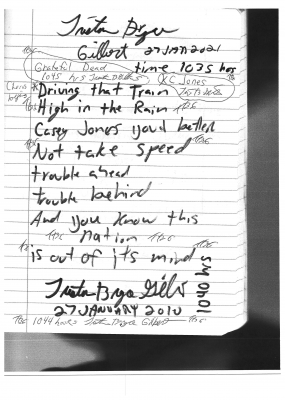 Trista Bryce
TBG
Gilbert 27 JAN 2021
Grateful Dead time 1035 hrs
1045 hrs KC Jones
Driving that Train
High in the Rain TBG
Casey Jones you'd better
Not take speed
trouble ahead
trouble behind
And you know this
TBG nation TBG
is out of its mind
Trista Bryce
27 JANUARY 2010
1040 hrs
TBG 1044 hours Trista Bryce Gilbert TBG